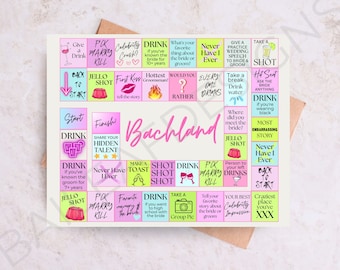 Give
a
Drink
F✗✗
MARRY
KILL
Celebrity
Crush?
DRINK
if you've
known the
bride for
10+ years
What's your
favorite
thing
about the
bride or
groom?
Never Have
I Ever
GIVE A
PRACTICE
WEDDING
SPEECH
TO BRIDE
& GROOM
TAKE A
SHOT
JELLO
SHOT
First Kiss
tell the story
Hottest
Groomsman?
WOULD YOU
RATHER
EVERY
ONE
DRINKS
Take a
break
Drink
water
Hot Seat
Ask the
bride
anything
Start
Finish!
Bachland
Where
did you
meet the
bride?
DRINK
if you're
wearing
black
DRINK
SHARE YOUR
HIDDEN
TALENT
JELLO
SHOT
MOST
EMBARRASSING
STORY
DRINK
if you've
known the
groom for
7+ years
Never Have I
Ever
MAKE A
TOAST
SHOT
SHOT
SHOT
DRINK
MARRY
KILL
Person to
your left
DRINKS
Never
Have I
Ever
JELLO
SHOT
MARRY
KILL
Favorite
memory of
the bride?
DRINK
if you went to
high school
with the
bride
TAKE A
Group Pic
Tell your
favorite
story about
the bride
or groom
YOUR BEST
Celebrity
Impression
Craziest
place
you've
XXX